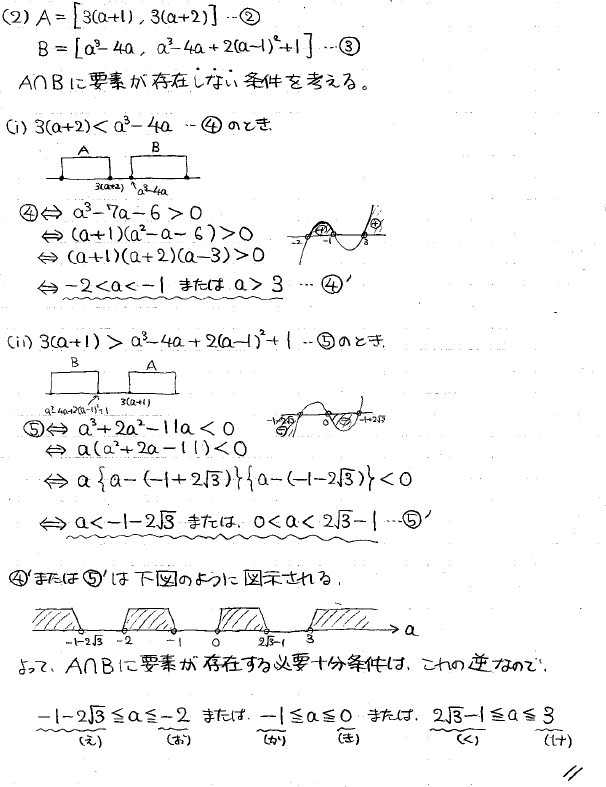 (2) A = [3(a+1), 3(a+2)] …②
B = [a³-4a, a³-4a+2(a-1)²+1] …③
A∩Bに要素が存在しない条件を考える。
(i) 3(a+2) < a³-4a …④ のとき、
A B
3(a+2) a³-4a
④ ⇔ a³-7a-6 > 0
⇔ (a+1)(a²-a-6) > 0
⇔ (a+1)(a+2)(a-3) > 0
⇔ -2<a<-1 または a>3 …④′
-2 ⊕ -1 3 ⊕
(ii) 3(a+1) > a³-4a+2(a-1)²+1 …⑤ のとき、
B A
a³-4a+2(a-1)²+1 3(a+1)
⑤ ⇔ a³+2a²-11a < 0
⇔ a(a²+2a-11) < 0
⇔ a{a-(-1+2√3)}{a-(-1-2√3)} < 0
⇔ a<-1-2√3 または、0<a<2√3-1 …⑤′
-1-2√3 ⊖ 0 ⊖ -1+2√3
④′または⑤′は下図のように図示される。
-1-2√3 -2 -1 0 2√3-1 3 a
よって、A∩Bに要素が存在する必要十分条件は、これの逆なので、
-1-2√3 ≦ a ≦ -2 または、-1 ≦ a ≦ 0 または、2√3-1 ≦ a ≦ 3
(え) (お) (か) (き) (く) (け)
//